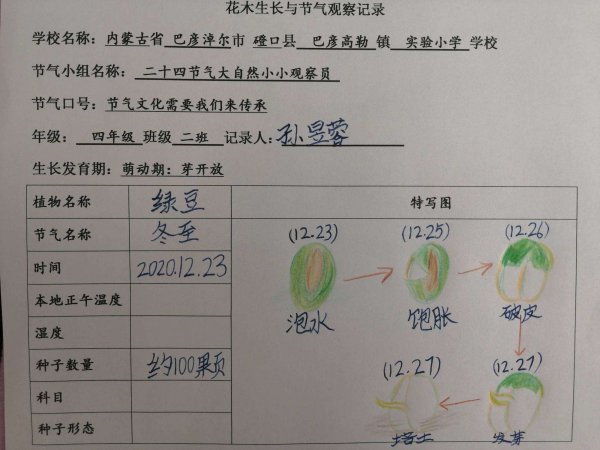 花木生长与节气观察记录
学校名称：内蒙古省 巴彦淖尔市 磴口县 巴彦高勒 镇 实验小学 学校
节气小组名称：二十四节气大自然小小观察员
节气口号：节气文化需要我们来传承
年级： 四年级 班级 二班 记录人：孙昱蓉
生长发育期：萌动期：芽开放
植物名称 绿豆 特写图
节气名称 冬至
时间 2020.12.23
本地正午温度
湿度
种子数量 约100颗
科目
种子形态
(12.23) (12.25) (12.26)
泡水 饱胀 破皮
(12.27) (12.27)
培土 发芽